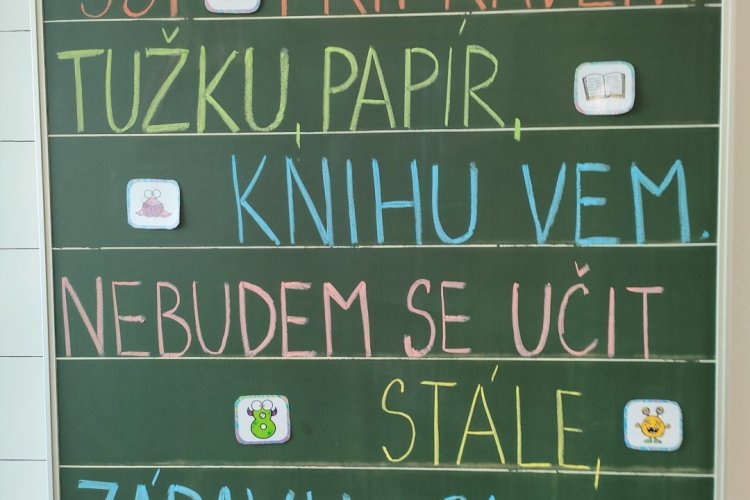 TUŽKU, PAPÍR,
KNIHU VEM.
NEBUDEM SE UČIT
STÁLE,
8